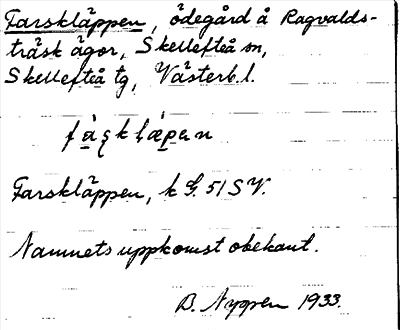 Farskläppen, ödegård å Ragvalds-
träsk ägor, Skellefteå sn,
Skellefteå tg, Västerb. l.
Farskläppen, k G. 51 S V.
Namnets uppkomst obekant.
B. Nyppen 1933.